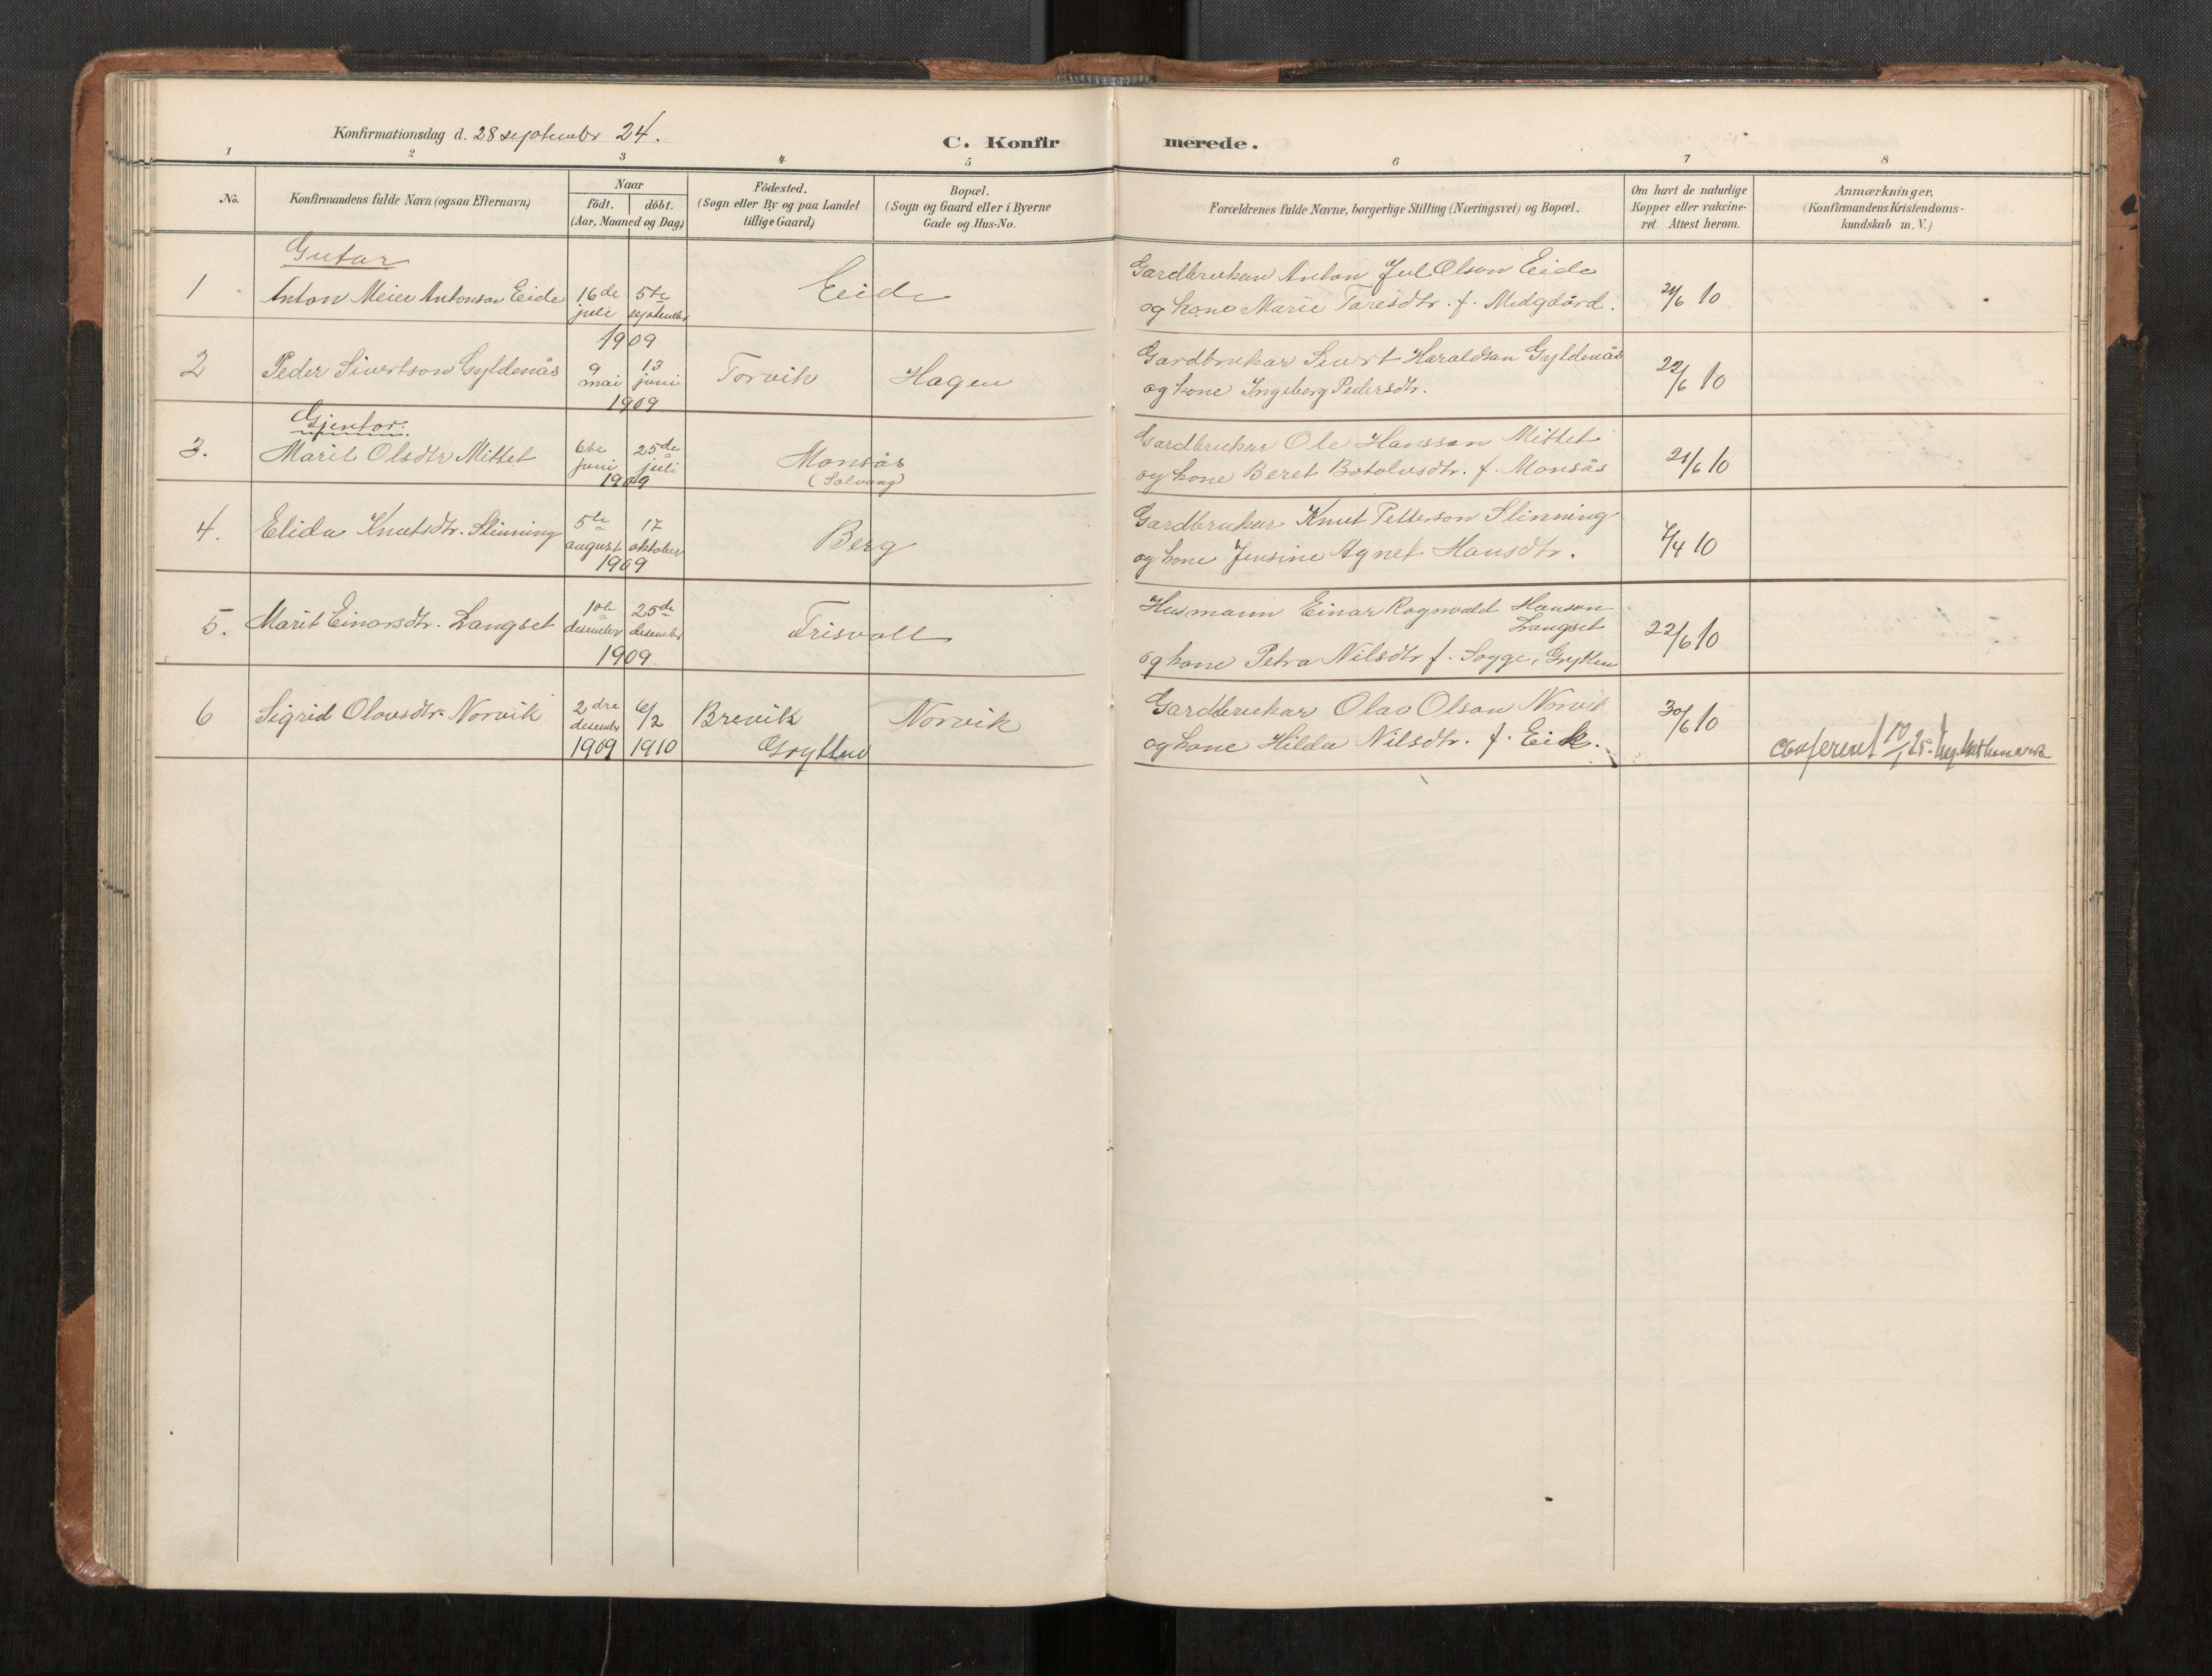 Konfirmationsdag d. 28 septembr 24.
C. Konfirmerede.
1 2 3 4 5 6 7 8
No.
Konfirmandens fulde Navn (ogsaa Efternavn)
Naar
födt. döbt.
(Aar, Maaned og Dag)
Födested.
(Sogn eller By og paa Landet
tillige Gaard)
Bopæl.
(Sogn og Gaard eller i Byerne
Gade og Hus-No.
Forældrenes fulde Navne, borgerlige Stilling (Næringsvei) og Bopæl.
Om havt de naturlige
Kopper eller vakcine-
ret. Attest herom.
Anmærkninger.
(Konfirmandens Kristendoms-
kundskab m. V.)
Gutar
1 Anton Meier Antonson Eide 16de juli 5te september 1909 Eide
Gardbrukar Anton Jul. Olson Eide
og kone Marie Taresdtr. f. Medgård. 21/6 10
2 Peder Sivertson Gyldenås 9 mai 13 juni 1909 Torvik Hagen
Gardbrukar Sivert Haraldson Gyldenås
og kone Ingeberg Pedersdtr. 22/6 10
Gjentor:
3. Marit Olsdtr Mittet 6te juni 25de juli 1909 Monsås
(Solvang)
Gardbrukar Ole Hansson Mittet
og kone Beret Botolvsdtr. f. Monsås 21/6 10
4. Elida Knutsdtr. Slinning 5te august 17 oktober 1909 Berg
Gardbrukar Knut Petterson Slinning
og kone Jensine Agnet Hansdtr. 7/4 10
5. Marit Einarsdtr. Langset 10de desember 25de desember 1909 Trisvoll
Husmann Einar Ragnvald Hanson
Langset
og kone Petra Nilsdtr f. Sogge, Grytten 22/6 10
6 Sigrid Olavsdtr. Norvik 2dre desember 1909 6/2 1910 Brevik
Grytten
Norvik
Gardbrukar Olav Olson Norvik
og kone Hilda Nilsdtr. f. Eik. 30/6 10
Conferert 10/1 25.